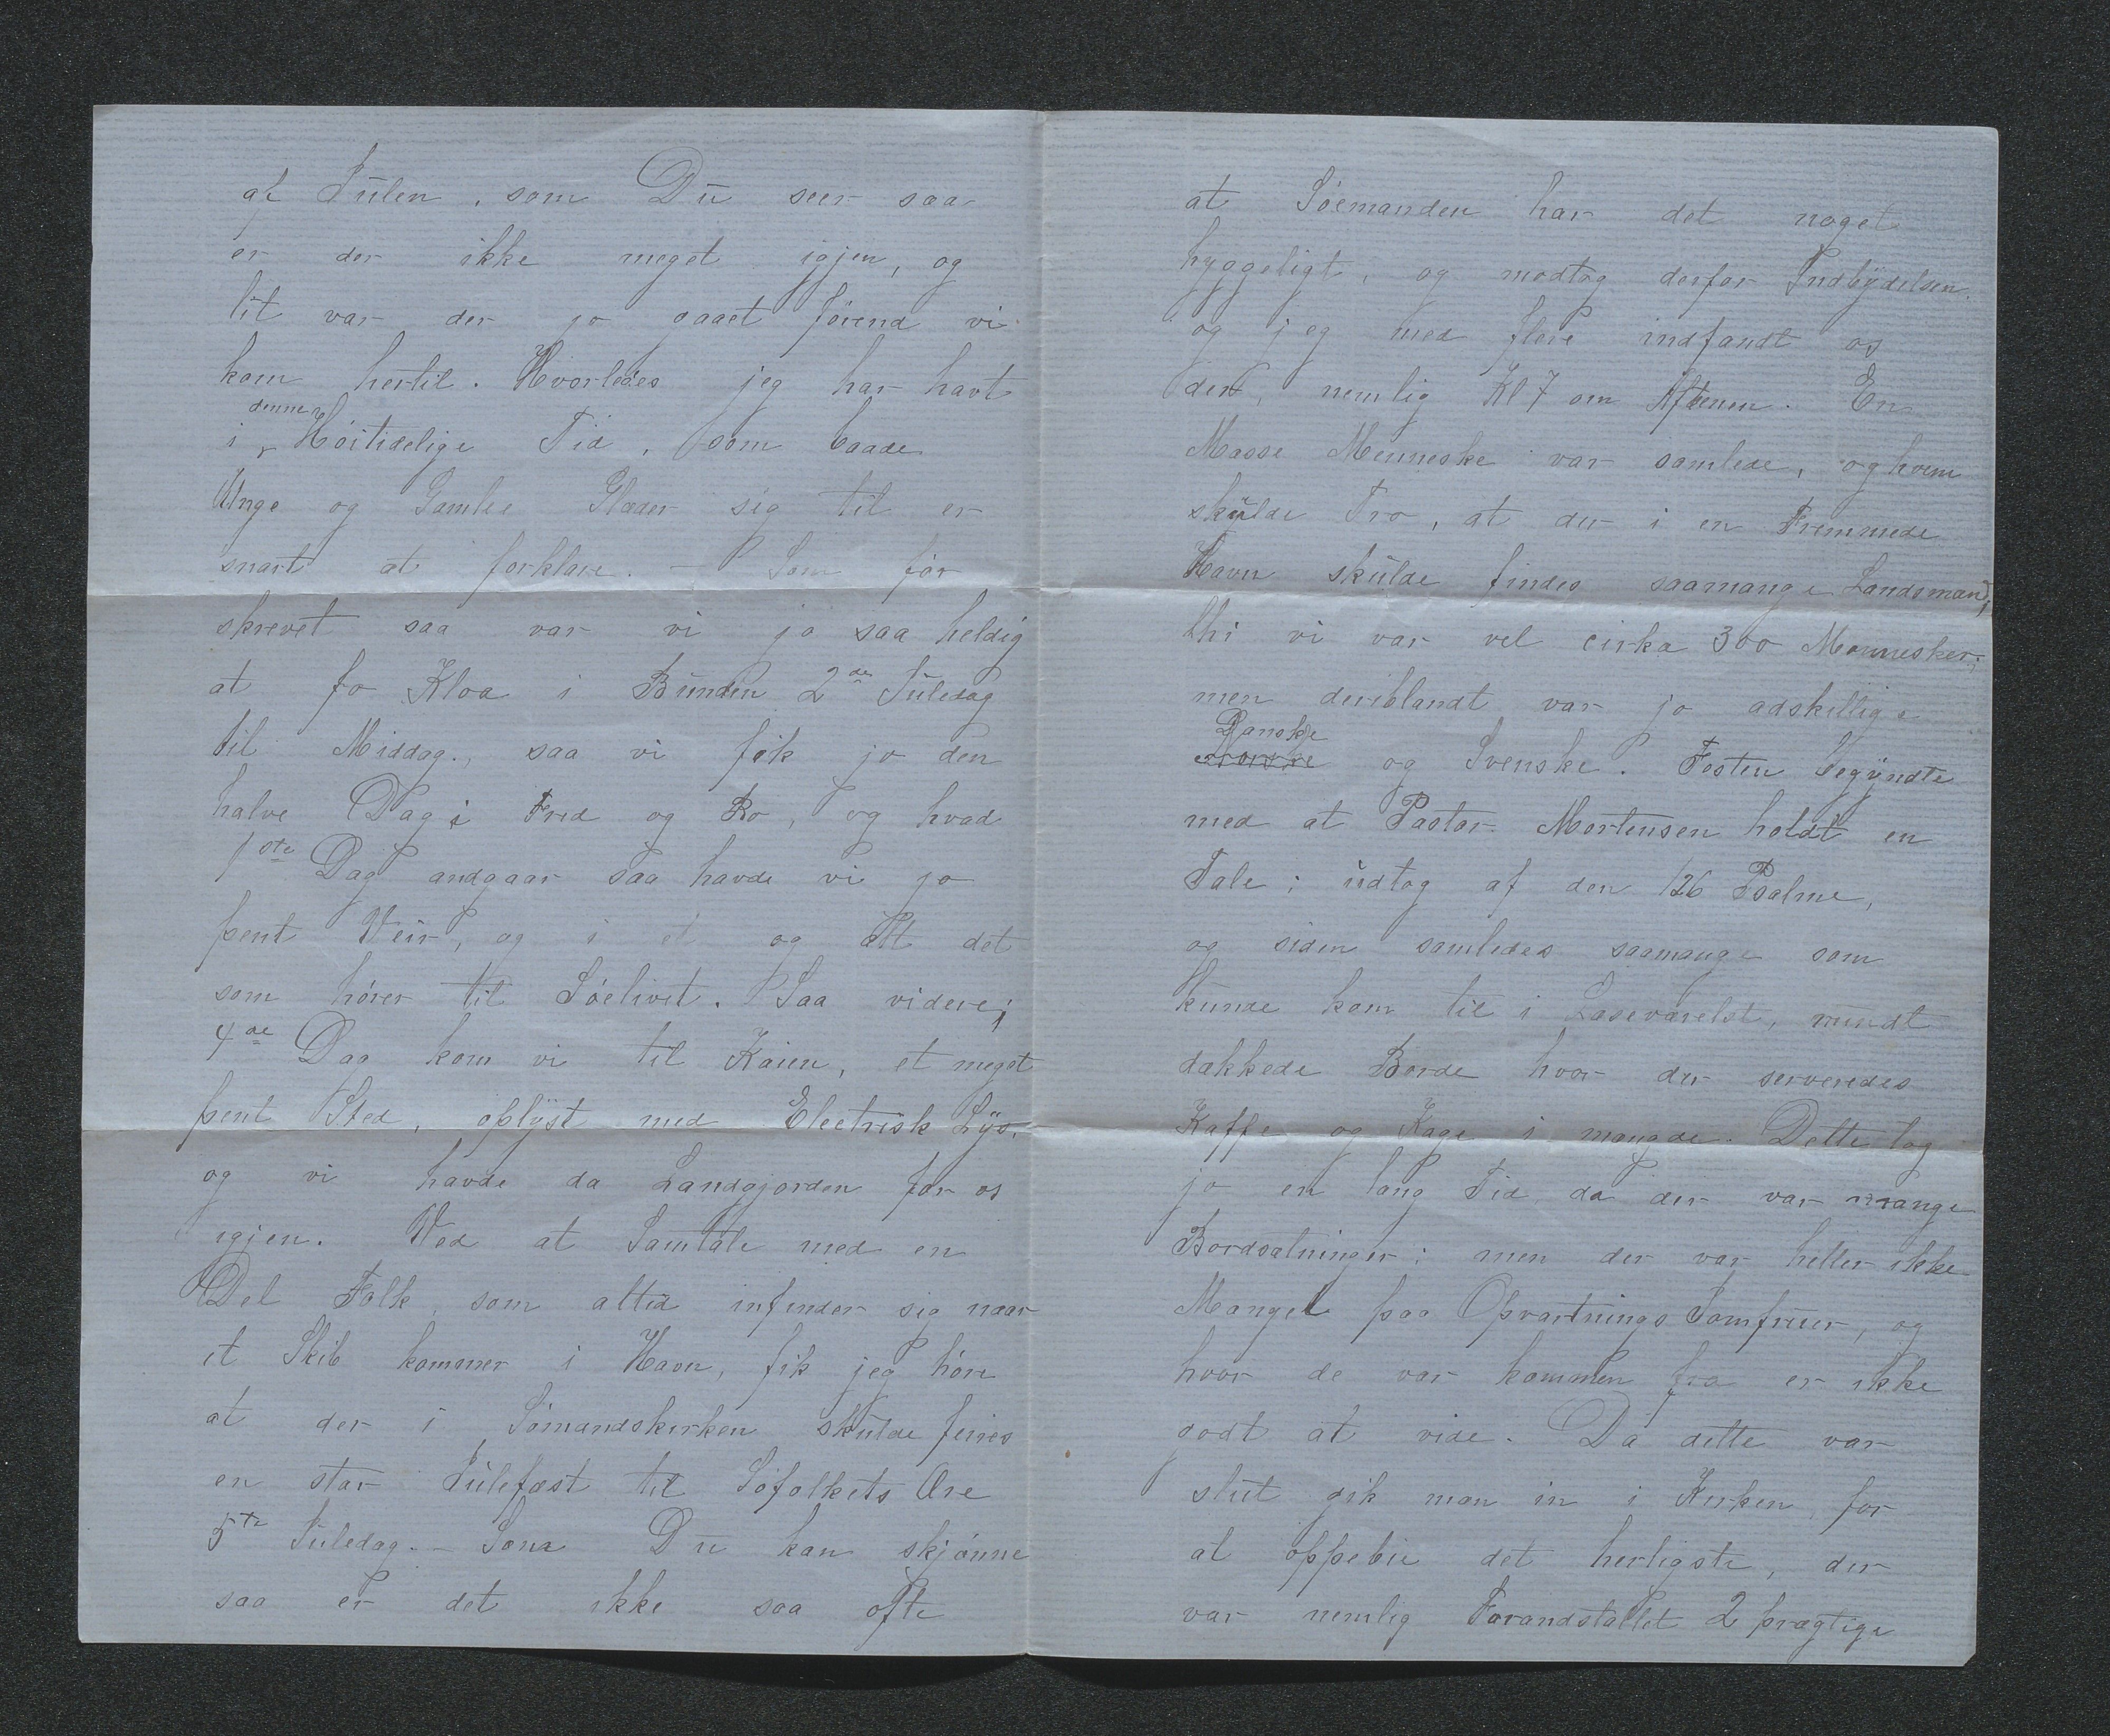 af Julen, som Du seer saa
er der ikke meget igjen, og
lit var der jo gaaet førend vi
kom hertil. Hvorledes jeg har havt
i denne Høitidelige Tid, som baade
Unge og Gamle Glæder sig til er
snart at forklare. – Som før
skrevet saa var vi jo saa heldig
at fa Kloa i Bunden 2de Juledag
til Middag., saa vi fik jo den
halve Dag i Fred og Ro, og hvad
1ste Dag andgaar saa havde vi jo
pent Veir, og i et og alt det
som hører til Søelivet. Saa videre;
4de Dag kom vi til Kaien, et meget
pent Sted, oplyst med Electrisk Lys,
og vi havde da Landgjorden for os
igjen. Ved at Samtale med en
Del Folk, som altid infinder sig naar
et Skib kommer i Havn, fik jeg høre
at der i Sømandskirken skulde feires
en stor Julefæst til Søfolkets Ære
5te Juledag. – Som Du kan skjønne
saa er det ikke saa ofte
at Søemanden har det noget
hyggeligt, og modtog derfor Indbydelsen.
og jeg med flere indfandt os
der, nemlig Kl 7 om Aftenen. En
Masse Menneske var samlede, og hvem
skulde Tro, at der i en Fremmede
Havn skulde findes saamange Landsmæn;
thi vi var vel cirka 300 Mennesker;
men deriblandt var jo adskillige
Danske
Norske og Svenske. Festen begyndte
med at Pastor Mortensen holdt en
Tale; udtog af den 126 Psalme,
og siden samledes saamange som
kunde kom til i Læseværelst, rundt
dækkede Borde hvor der serveredes
Kaffe og Kage i mængde. Dette tog
jo en lang Tid da der var mange
Bordsætninger; men der var heller ikke
Mangel paa Opvartnings Jomfruer, og
hvor de var kommen fra er ikke
godt at vide. Da dette var
slut gik man in i Kirken, for
at oppebie det herligste, der
var nemlig Forandstaltet 2 prægtige